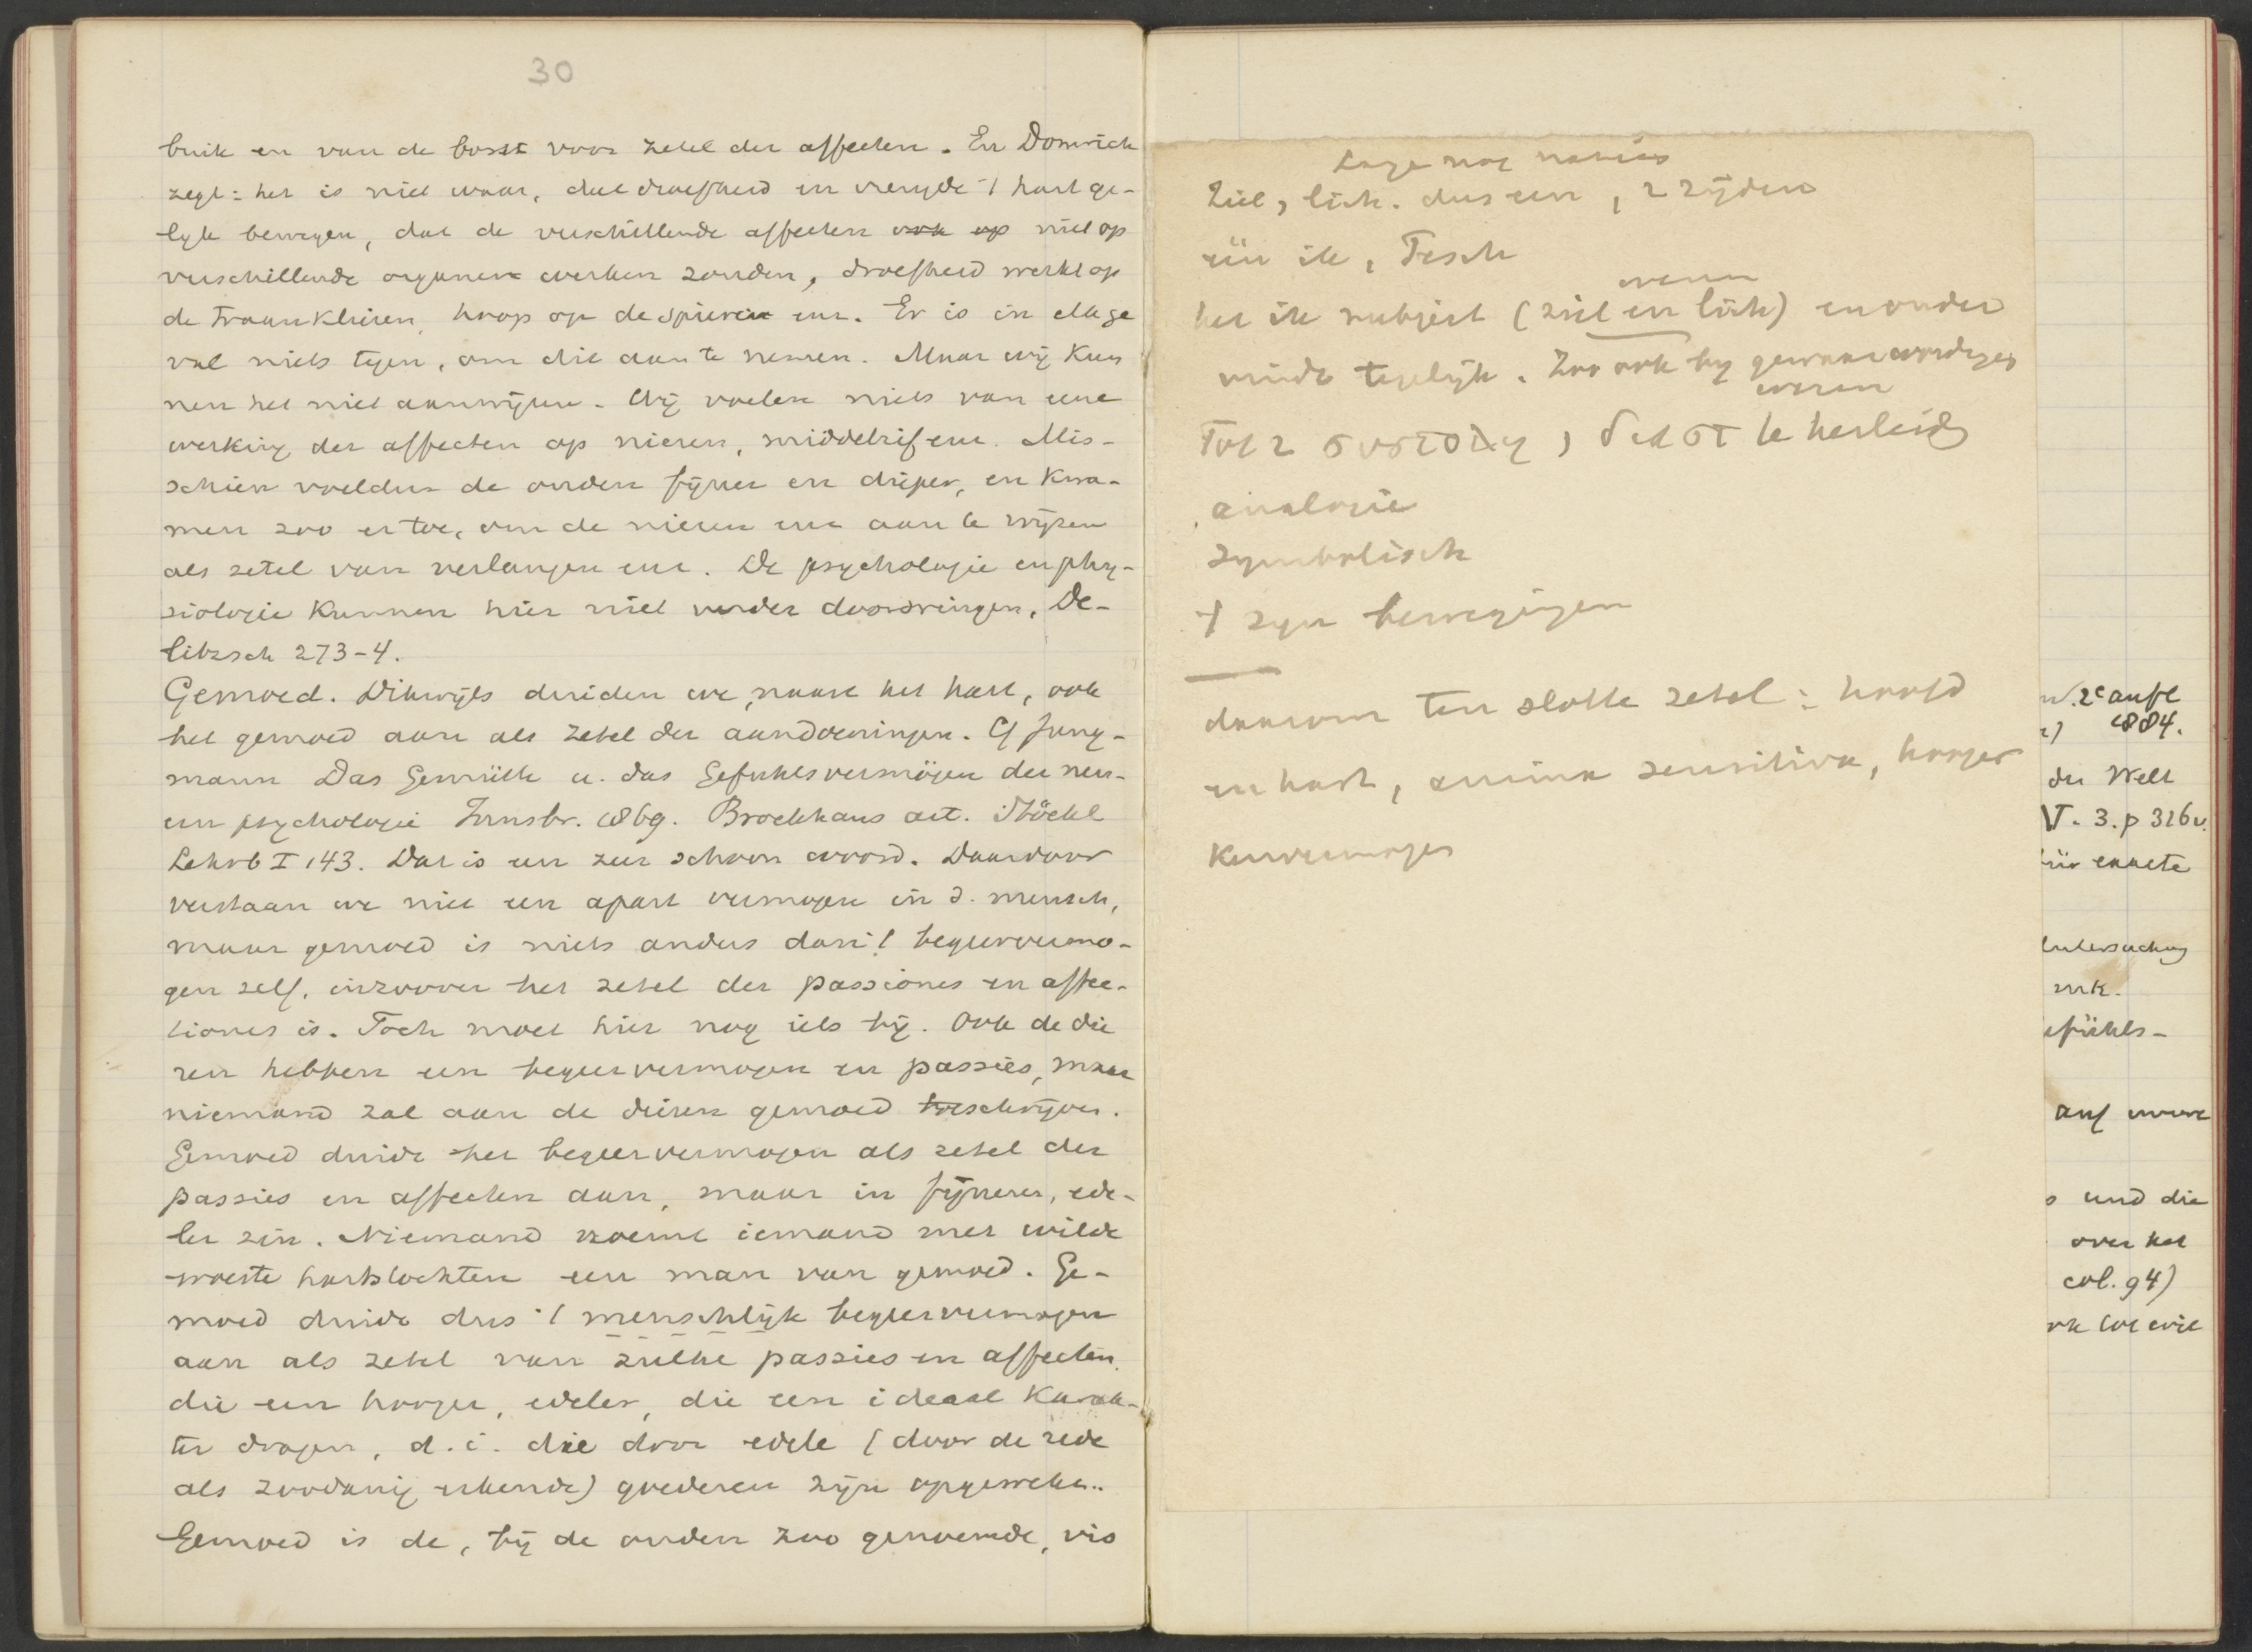 30
buik en van de borst voor zetel der affecten. En Domrich
zegt: het is niet waar, dat droefheid en vreugde 't hart ge-
lyk bewegen, dat de verschillende affecten ook op niet op
verschillende organen werken zouden, droefheid werkt op
de traanklieren, hoop op de spieren enz. Er is in elk ge
val niets tegen, om dit aan te nemen. Maar wij kun
nen het niet aanwijzen. Wij voelen niets van eene
werking der affecten op nieren, middelrif enz. Mis-
schien voelden de ouden fijner en dieper, en kwa-
men zoo er toe, om de nieren enz aan te wijzen
als zetel van verlangen enz. De psychologie en phy-
siologie kunnen hier niet verder doordringen, De-
litzsch 273-4.
Gemoed. Dikwijls duiden we, naast het hart, ook
het gemoed aan als zetel der aandoeningen. Cf Jung-
mann Das Gemüth u. das Gefuhlsvermögen der neu-
ern psychologie Innsbr. 1869. Brockhaus art. Stöckl
Lehrb I 143. Dat is een zeer schoon woord. Daardoor
verstaan we niet een apart vermogen in d. mensch,
maar gemoed is niets anders dan 't begeervermo-
gen zelf, inzoover het zetel der passiones en affec-
tiones is. Toch moet hier nog iets bij. Ook de die
ren hebben een begeervermogen en passies, maar
niemand zal aan de dieren gemoed toeschrijven.
Gemoed duidt het begeervermogen als zetel der
passies en affecten aan, maar in fijneren, ede-
ler zin. Niemand noemt iemand met wilde
woeste hartstochten een man van gemoed. Ge-
moed duidt dus 't menschlijk begeervermogen
aan als zetel van zulke passies en affecten,
die een hooger, edeler, die een ideaal karak-
ter dragen, d.i. die door edele (door de rede
als zoodanig erkende) goederen zijn opgewekt..
Gemoed is de, bij de ouden zoo genoemde, vis
Ziel, lich. dus een, 2 zijden
één ik, Tesch
het ik subject (ziel en lich) en onder
vindt tegelijk. Zoo ook by gewaarwordingen
Tot 2 te herleid
analogie
symbolisch
't zyn bewegingen
daarom ten slotte zetel: hoofd
en hart, anima sensitiva, hooger
kenvermogen
w. 2e aufl
1884.
der Welt
V. 3. p 316 v.
für exacte
Untersuchung
efühls-
auf unsre
s und die
over het
col. 94)